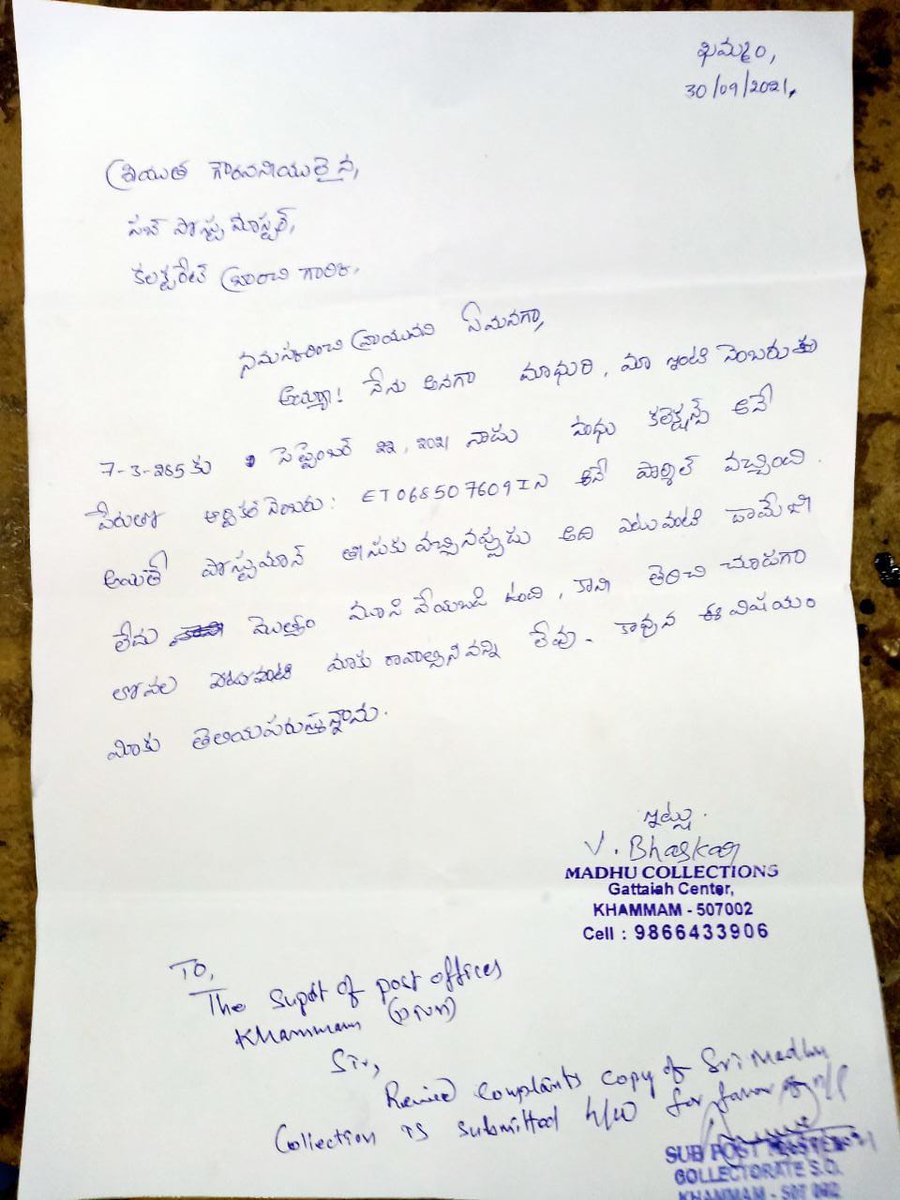 ఖమ్మం,
30/09/2021.
శ్రీయుత గౌరవనీయులైన,
సబ్ పోస్టు మాస్టర్,
కలెక్టరేట్ బ్రాంచి గారికి.
నమస్కరించి వ్రాయునది ఏమనగా,
అయ్యా! నేను అనగా మాధురి, మా ఇంటి నెంబరు
7-3-285కు సెప్టెంబర్ 22, 2021 నాడు మధు కలెక్షన్స్ అనే
పేరుతో ఆర్టికల్ నెంబరు: ET068507609IN అనే పార్శిల్ వచ్చింది.
అయితే పోస్టుమాన్ తీసుకు వచ్చినప్పుడు అది ఎటువంటి డామేజీ
లేదు మొత్తం మూసి వేయబడి ఉంది, కాని తెరిచి చూడగా
లోపల ఎటువంటి మాకు రావాల్సినవన్ని లేవు. కావున ఈ విషయం
మీకు తెలియపరుస్తున్నాము.
ఇట్లు.
V. Bhaskar
MADHU COLLECTIONS
Gattaiah Center,
KHAMMAM - 507002
Cell : 9866433906
To,
The Supdt of post offices
Khammam (DVN)
Sir,
complaints copy of Sri Madhu
Collection is submitted h/w for favour of
SUB POST MASTER
COLLECTORATE S.O.
KHAMMAM